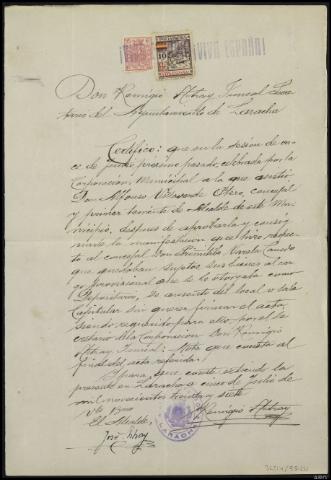 ¡VIVA ESPAÑA!
10
Don Remigio Astray Juncal Secre
tario del Ayuntamiento de Laracha
Certifico: que en la sesión de on
ce de junio próximo pasado, celebrada por la
Corporación Municipal a la que asistió
Don Alfonso Otero, concejal
y primer teniente de Alcalde de este Mu
nicipio, después de aprobarla y consig
nando la manifestación que hizo respec
to al concejal Don Varela
que quedaban sujetos sus bienes al car
go provisional que se le otorgaba como
Depositario, se ausentó del local o sala
Capitular sin querer firmar el acta,
siendo requerido para ello, por el Se
cretario de la Corporación Don Remigio
Astray Juncal: Nota que consta al
final del acta referida.
Y para que conste extiendo la
presente en Laracha a cinco de Julio de
mil novecientos treinta y siete
Vto Bno
El Alcalde,
Remigio Astray
José
LARACHA